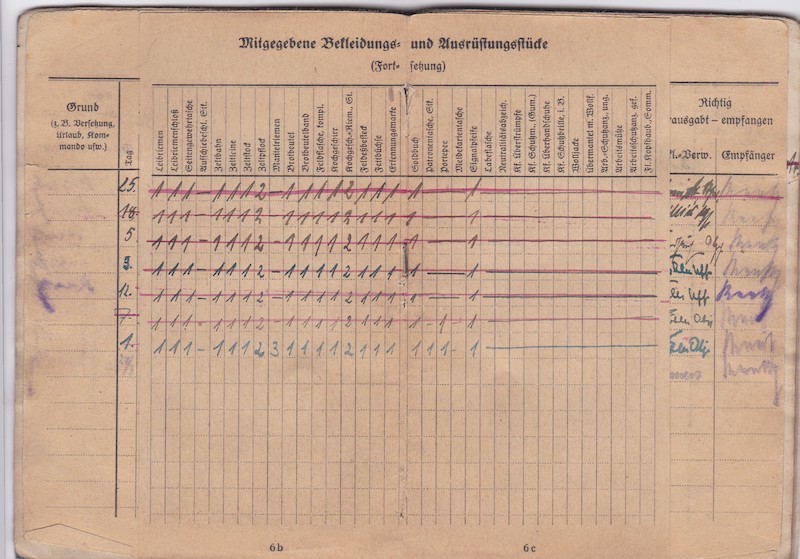 Mitgegebene Bekleidungs- und Ausrüstungsstücke
(Fort- setzung)
Grund
(z. B. Versetzung,
Urlaub, Kom-
mando usw.)
Tag
Leibriemen
Leibriemenschloß
Seitengewehrtasche
Zeltbahn
Zeltleine
Zeltstock
Zeltpflock
Mantelriemen
Brotbeutel
Brotbeutelband
Feldflasche, kompl.
Kochgeschirr
Kochgesch.-Riem., St.
Feldeßbesteck
Fettbüchse
Erkennungsmarke
Soldbuch
Patronentasche, Stk.
Portepee
Meldekartentasche
Signalpfeife
Labeflasche
Neutralitätsabzeich.
Kf. Überstrümpfe
Kf. Schutzm., (Gum.)
Kf. Überhandschuhe
Kf. Schutzbrille, i. B.
Wolljacke
Übermantel m. Wollf.
Arb.-Schutzanz., ung.
Arbeitsmütze
Arbeitsschutzanz. gef.
Fl. Kopfhaub., Somm.
Richtig
rausgabt – empfangen
l.-Verw.
Empfänger
25. 1 1 1 – 1 1 1 2 – 1 1 1 1 2 1 1 1 1 — 1
18. 1 1 1 – 1 1 1 2 – 1 1 1 1 2 1 1 1 1 — 1
5 1 1 1 – 1 1 1 2 – 1 1 1 1 2 1 1 1 1 — 1
3. 1 1 1 – 1 1 1 2 – 1 1 1 1 2 1 1 1 1 — 1
12. 1 1 1 – 1 1 1 2 – 1 1 1 1 2 1 1 1 1 — 1
1 1 1 – 1 1 1 2 – 1 1 1 1 2 1 1 1 1 – 1 – 1
1. 1 1 1 – 1 1 1 2 3 1 1 1 1 2 1 1 1 1 1 1 – 1
6b
6c